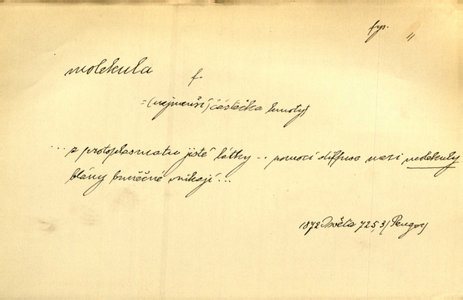 fys. "
molekula f
= (nejmenší) částečka hmoty
... z protoplasmatu jisté látky .. pomocí diffuse mezi molekuly
blány buněčné vnikají ...
1872 Květa 725,3